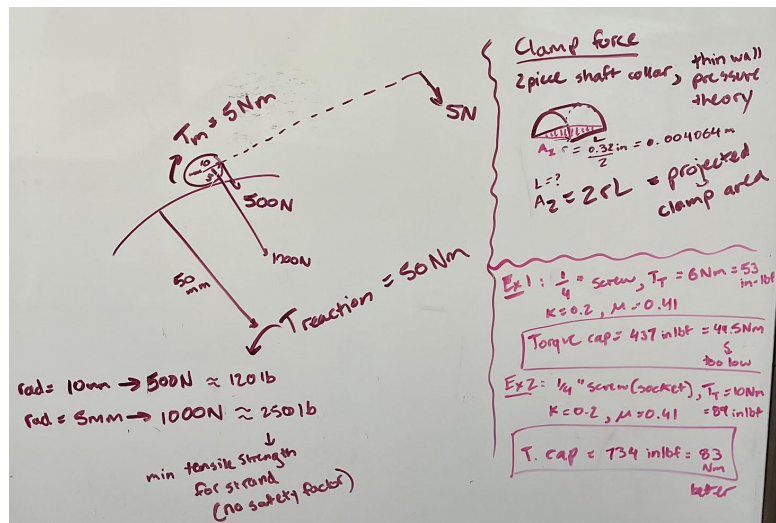 Tm = 5Nm
5N
10
5
500N
1200N
50
mm
Treaction = 50Nm
rad = 10mm → 500N ≈ 120 lb
rad = 5mm → 1000N ≈ 250 lb
↓
min tensile strength
for strand
(no safety factor)
Clamp force
2 piece shaft collar, thin wall
pressure
theory
A2 r = 0.32/2 in = 0.004064 m
L = ?
A2 = 2rL = projected
clamp area
Ex1: 1/4" screw, TT = 6Nm = 53
in-lbf
K=0.2, μ=0.41
Torque cap = 437 inlbf = 49.5Nm
↓
too low
Ex2: 1/4" screw (socket), TT = 10Nm
= 89 inlbf
K=0.2, μ=0.41
T. cap = 734 inlbf = 83
Nm
better